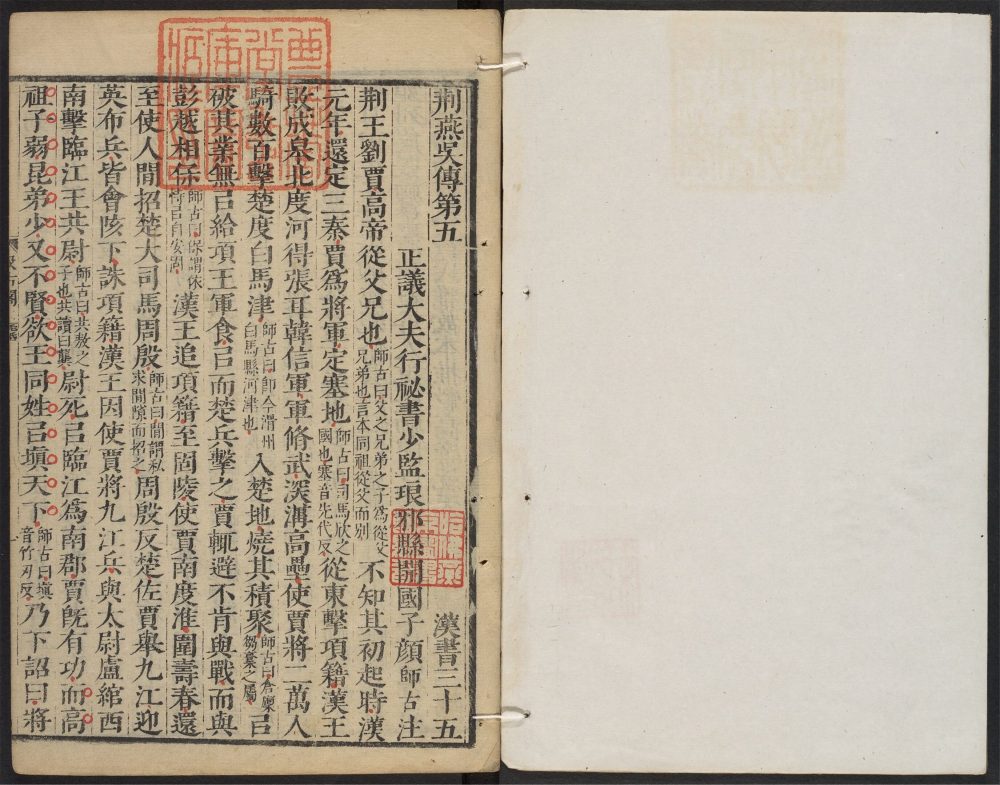 荆燕吳傳第五 漢書三十五
正議大夫行祕書少監琅邪縣開國子顏師古注
荆王劉賈高帝從父兄也師古曰父之兄弟之子爲從父兄弟也言本同祖從父而別不知其初起時漢
元年還定三秦賈爲將軍定塞地師古曰司馬欣之國也塞音先代反從東擊項籍漢王
敗成皋北度河得張耳韓信軍軍脩武深溝高壘使賈將二萬人
騎數百擊楚度白馬津師古曰即今滑州白馬縣河津也入楚地燒其積聚師古曰倉廩芻稾之屬㠯
破其業無㠯給項王軍食㠯而楚兵擊之賈輒避不肯與戰而與
彭越相保師古曰保謂依恃㠯自安固漢王追項籍至固陵使賈南度淮圍壽春還
至使人閒招楚大司馬周殷師古曰閒謂私求閒隙而招之周殷反楚佐賈舉九江迎
英布兵皆會陔下誅項籍漢王因使賈將九江兵與太尉盧綰西
南擊臨江王共尉師古曰共敖之子也共讀曰龔尉死㠯臨江爲南郡賈旣有功而高
祖子弱昆弟少又不賢欲王同姓㠯塡天下師古曰塡音竹刃反乃下詔曰將